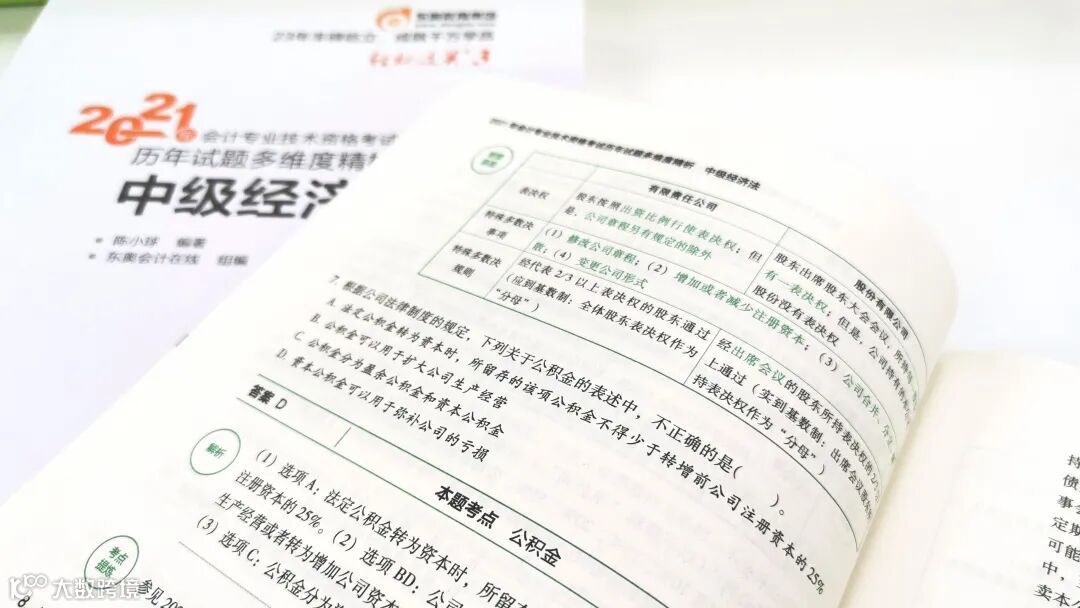 东奥教育集团
23年车神独立 成就千万学员
轻松过关 3
2021年 会计专业技术资格考试
历年试题多维度精
中级经济
• 陈小球 编著
• 东奥会计在线 组编
2021年会计专业技术资格考试历年试题多维度精析 中级经济法
有限责任公司
股份有限公司
表决权
股东按照出资比例行使表决权；但
是，公司章程另有规定的除外
股东出席股东大会会议，所持
有一表决权；但是，公司持有的
股份没有表决权
特殊多数决
事项
(1) 修改公司章程；(2) 增加或者减少注册资本；(3) 公司合并、分立、
散；(4) 变更公司形式
特殊多数决
规则
经代表2/3以上表决权的股东通过
(应到基数制：全体股东表决权作为
“分母”)
经出席会议的股东所持表决权的2/3
上通过（实到基数制：出席会议股东
持表决权作为“分母”）
7. 根据公司法律制度的规定，下列关于公积金的表述中，不正确的是( )。
A. 法定公积金转为资本时，所留存的该项公积金不得少于转增前公司注册资本的25%
B. 公积金可以用于扩大公司生产经营
C. 公积金分为盈余公积金和资本公积金
D. 资本公积金可以用于弥补公司的亏损
答案 D
本题考点 公积金
解析
(1) 选项A：法定公积金转为资本时，所留
注册资本的25%。(2) 选项BD：公
生产经营或者转为增加公司资本
(3) 选项C：公积金分为
考点
提炼
参见20
8.
持
债
事
定期
可能
中，
卖本
大数跨境